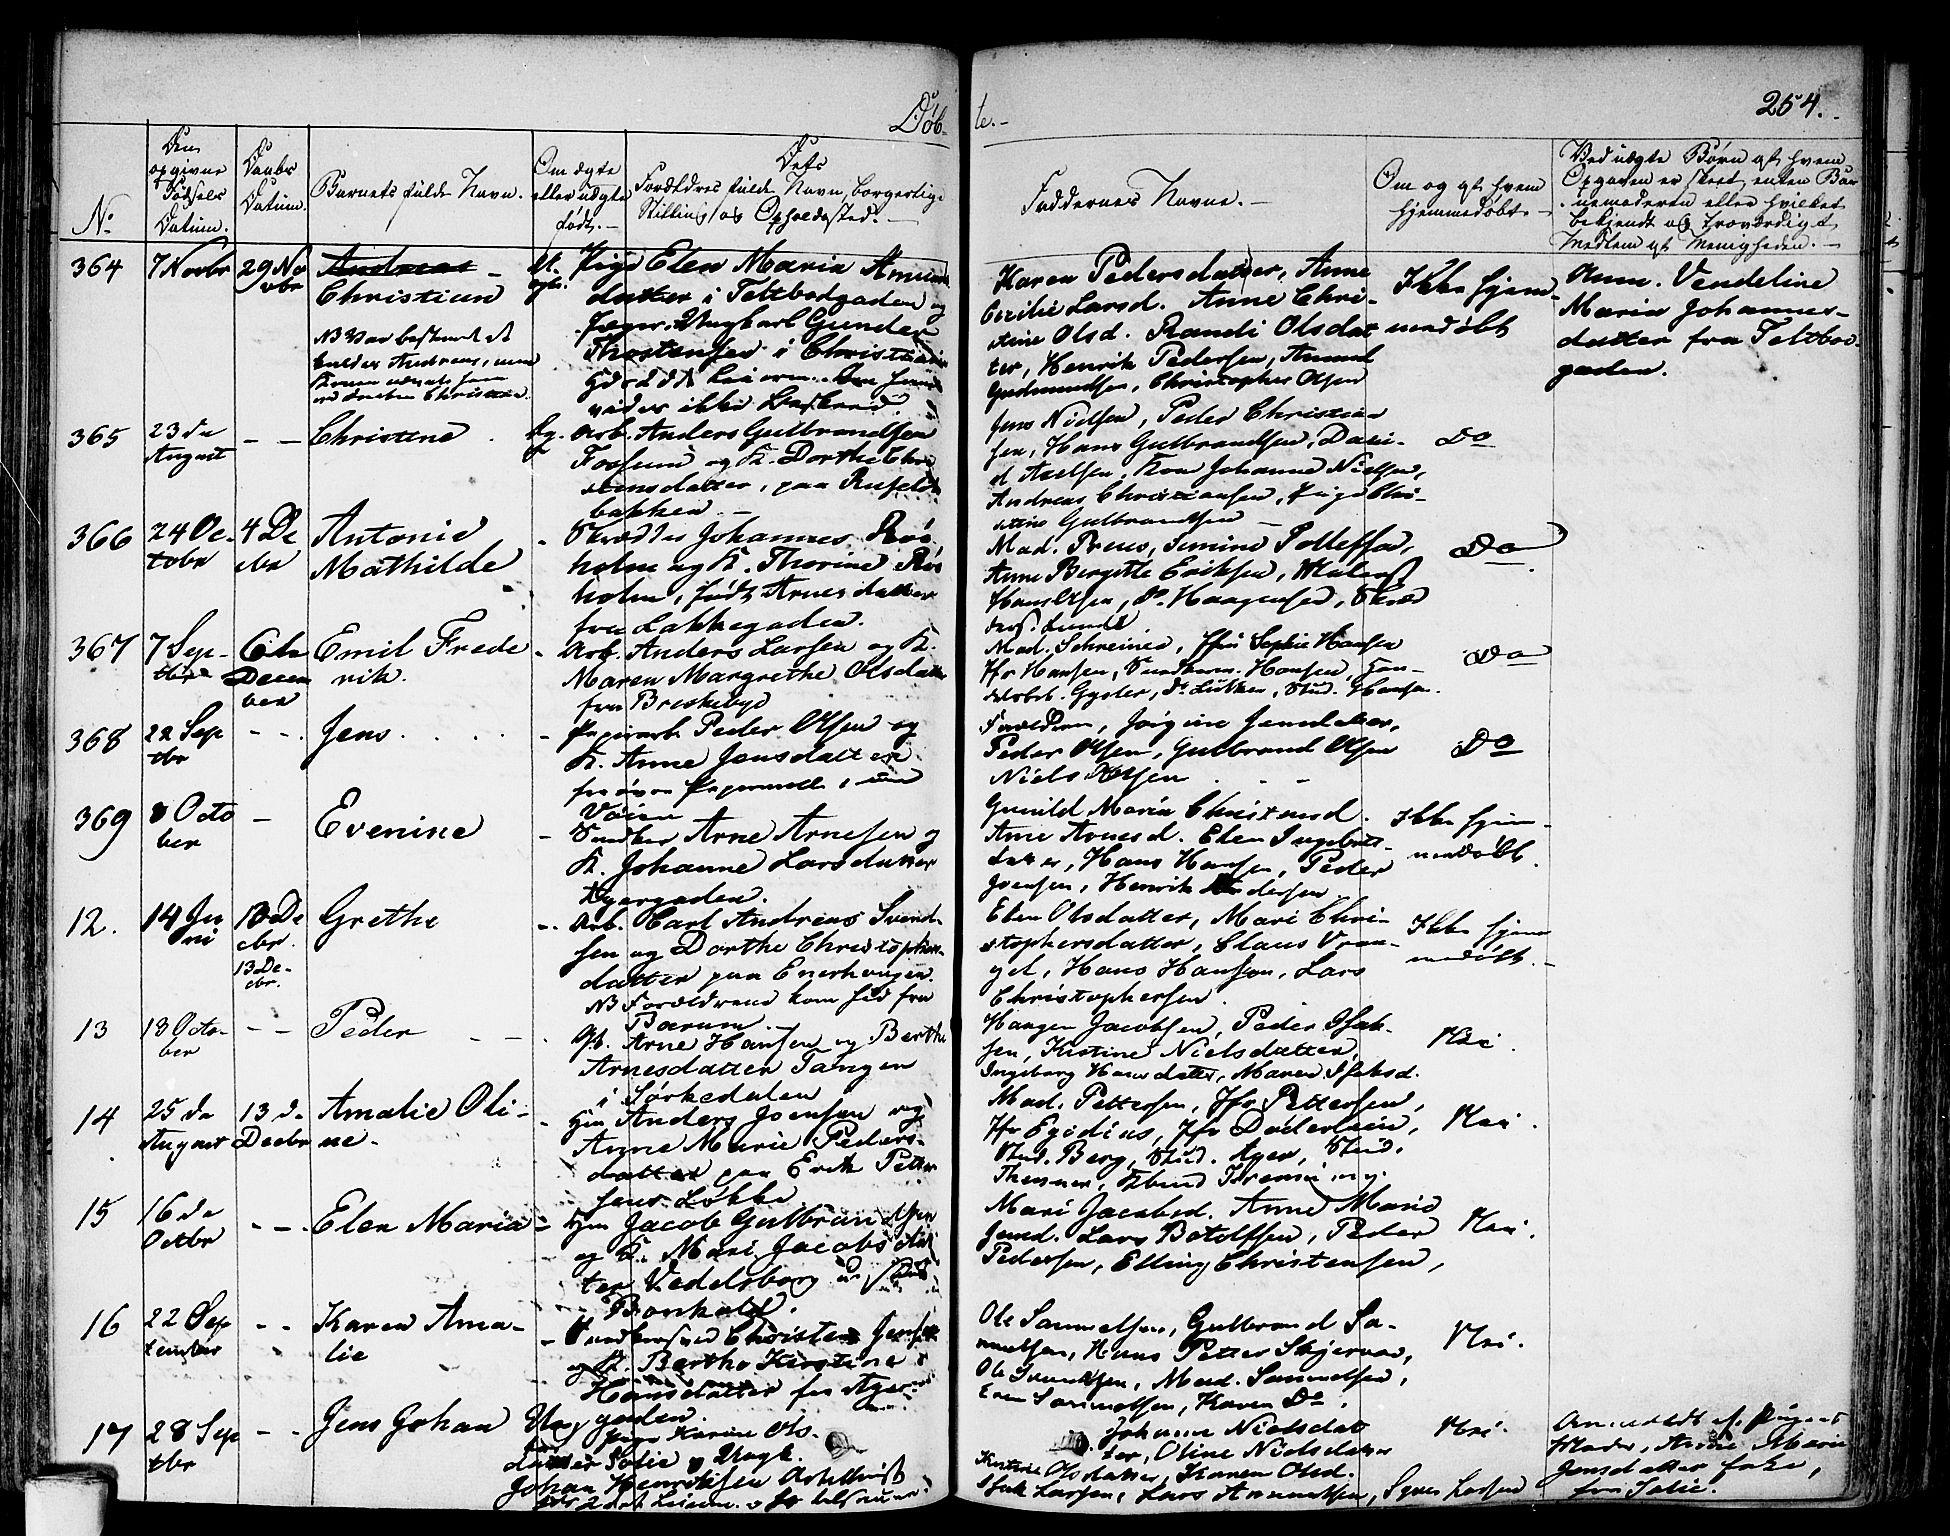 Døb-
te.-
254.
No
Den opgivne Fødsels Datum.
Daabs Datum.
Barnets fulde Navn.
Om ægte eller uægte født.
Dets Forældres fulde Navn, borgerlige Stilling og Opholdssted.-
Faddernes Navne.-
Om og af hvem hjemmedøbt.-
Ved uægte Børn af hvem Opgaven er skeet, enten Barnemoderen eller hvilket bekjendt og troværdigt Medlem af Menigheden.-
364
7 Novbr
29 No
vbr
Andreas -
Christian
NB Var bestemt at
kaldes Andreas, men
Pige Elen Maria
datter i Teltbodgaden og
Gunder
Thostensen i Christiania
Karen Pedersdatter, Anne
Cecilie Larsd. Anne Chri-
stine Olsd. Randi Olsdat
ter, Henrik Pedersen, Amund
Gudmundsen, Christopher Olsen
Ikke hjem-
medøbt
Anne Vendeline
Maria Johannes-
datter fra Teltbod-
gaden.
365
23 de
August
- -
Christine
Arb. Anders Gulbrandsen
Fossum og K. Dorthe Chri
stensdatter, paa Ruseløk
bakken.-
Jens Nielsen, Peder Christian
sen, Hans Gulbrandsen, Davi-
d Axelsen, Kon Johanne Nielsen,
Andreas Christiansen, Pige Chri-
stine Gulbrandsen
Do
366
24 Oc-
tober
4 De
cbr
Antonie
Mathilde
Skrædder Johannes Røs
holm og K. Thorine Røs
holm, født Arnesdatter
fra Lakkegaden.
Mad. Preus,
Anne Bergitte Eriksen,
Hans Olsen, Haagensen,
Do
367
7 Sep-
tbr
6te
Decem
ber
Emil Frede
rik.
Arb. Anders Larsen og K.
Maren Margrethe Olsdatter
fra Briskebyd
Mad. Schreiner, Jfr Sophie Hansen
Jfr Hansen, Hansen,
Gysler, Lütken, Stud. Hansen.
Do
368
22 Sep
tbr
- -.
Jens.
Papirarb Peder Olsen og
K. Anne Jensdatter
fra øvre Papermølle, ved
Vøien
Forældrene, Jørgine Jensdatter,
Peder Olsen, Gulbrand Olsen
Niels Olsen
Do
369
8 Octo
ber
-
Evenine
Snedker Arne Arnesen og
K. Johanne Larsdatter
Agergaden.
Gunild Maria Christensd.
Anne Arnesd. Elen Ingebrets-
datter, Hans Hansen, Peder
Joensen, Henrik Pedersen
Ikke hjem-
medøbt.
12.
14 Ju
ni
13 De
cbr.
13 De-
cbr.
Grethe
Arb. Karl Andreas Svend-
sen og Dorthe Christophers-
datter paa Enerhougen.
NB Forældrene kom hid fra
Barum.-
Elen Olsdatter, Mari Chri-
stophersdatter, Claus Vran-
gel, Hans Hansen, Lars
Christophersen.
Ikke hjem
medøbt.-
13
18 Octo-
ber
- -
Peder
Gb. Arne Hansen og Berthe
Arnesdatter Tangen
i Sørkedalen
Haagen Jacobsen, Peder Isak-
sen, Kistine Nielsdatter,
Ingeborg Hansdatter, Maren Isaksd.
Nei.
14
25 de
August
13 de
Decbr
Amalie Oli-
ne.
Hm Anders Joensen og
Anne Marie Peders-
datter paa Erik Petter
sens Løkke
Mad. Pettersen, Jfr Pettersen,
Jfr Egidius, Jfr Døderlein,
Stud. Berg, Stud. Ager, Stud.
Nei.
15
16 de
Octbr
- -.
Elen Maria
Hm Jacob Gulbrandsen
og K. Mari Jacobsdat
ter Vedelsborg
Mari Jacobsd. Anne Marie
Lars Botolfsen, Peder
Pedersen, Elling Christensen,
Nei.
16
22 Sep
tember
- -
Karen Ama-
lie
Christen Jensen
og K. Berthe Kirstine
Hansdatter fra Ager-
gaden.
Ole Samuelsen, Gulbrand Sa-
muelsen, Hans Petter Skjervae,
Ole Svendsen, Mad. Samuelsen,
Even Samuelsen, Karen Do.
Nei.
17
28 Sep
tbr
- -
Jens Johan
Uæg
Pige Karine Ols-
datter Solie og Ungk.
Johan Henriksen
Johanne Nielsdat
ter, Oline Nielsdatter
Kistine Olsdatter, Karen Olsd.
Isak Larsen, Lars Amundsen, Syver Larsen
Nei.
Anmeldt af Pigens
Moder, Anne Marie
Jensdatter
fra Solie.